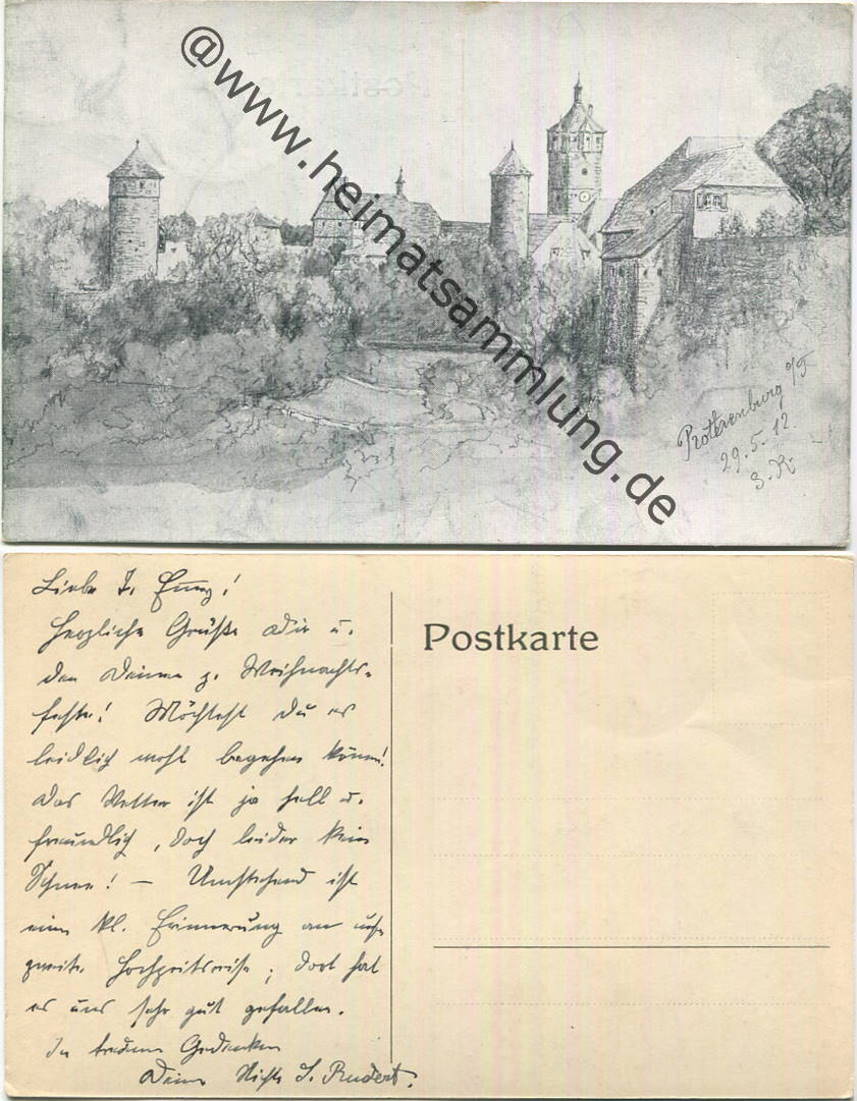 @www.heimatsammlung.de
Rothenburg o/T
29.5.12.
Postkarte
Liebe T. !
Herzliche Grüße Dir u.
den Deinen z. Weihnachts-
feste! Möchtest Du es
leidlich wohl begehen können!
Das Wetter ist ja hell u.
freundlich, doch leider kein
Schnee! – Umstehend ist
eine kl. Erinnerung an uns.
zweite Hochzeitsreise; dort hat
es uns sehr gut gefallen.
In treuem Gedenken
Deine Nichte Rudert.